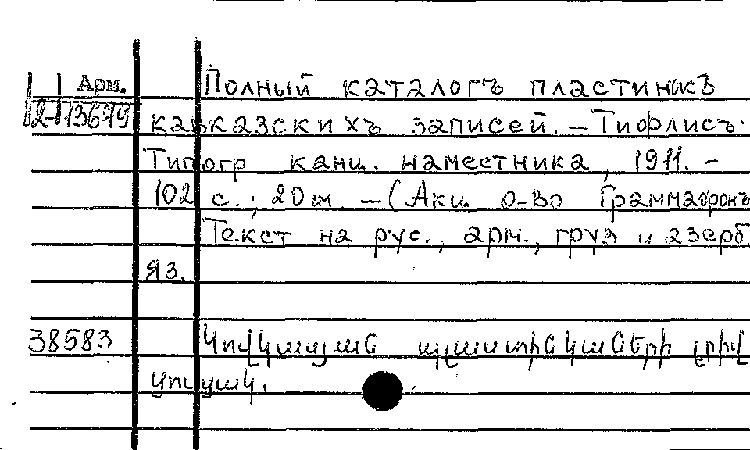 Арм. Полный каталогъ пластинкъ
2-113679 кавказскихъ записей. – Тифлисъ:
Типогр канц. наместника, 1911. –
102 с.; 20см. – (Акц. о-во Граммофонъ
Текст на рус., арм., груз и азерб
яз.
38583 Կովկասյան պլաստինկաների լրիվ
ցուցակ.